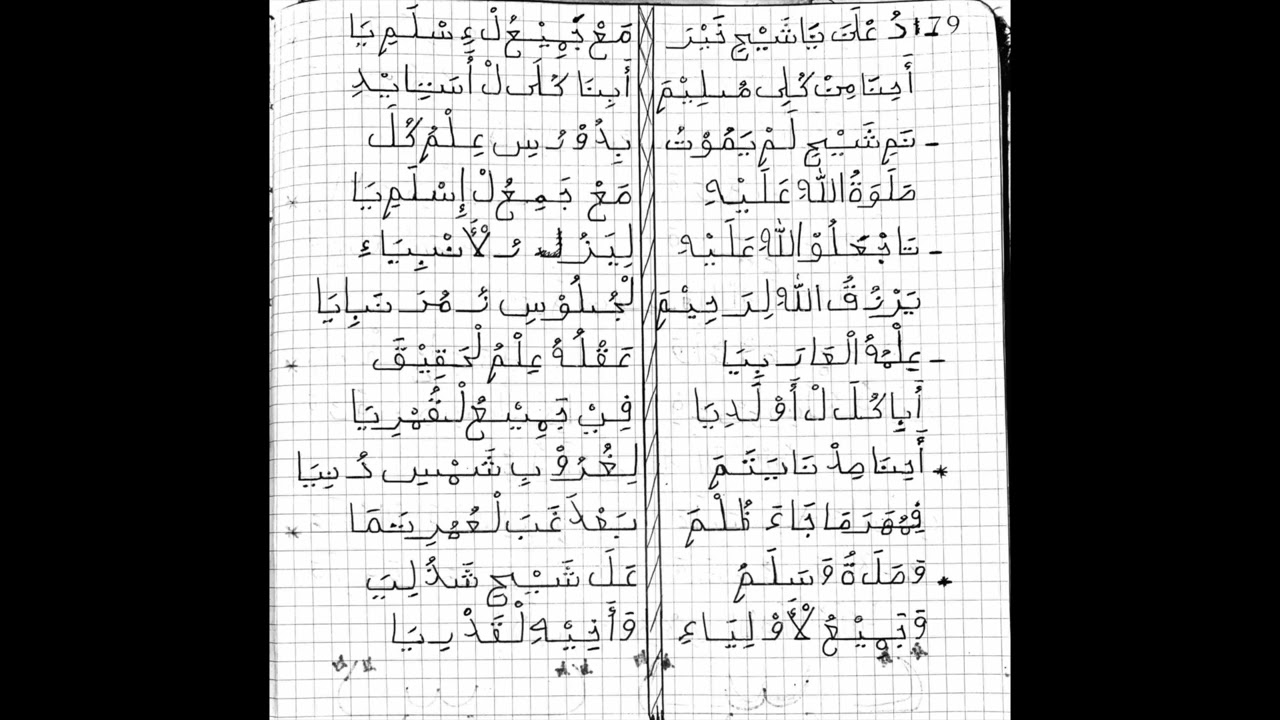 179 دُ عَلَى يَا شَيْخِ خَيْرَ مَعْ جَمِيْعُ لْ إِسْلَمِ يَا
أَحِنَا مِنْ كُلِى مُسلِيْمَ أَبِنَا كُلَى لْ أُسَتِايْدِ
- تَمِ شَيْخِ لَمْ يَمُوْتُ بِدُوْرُسِ عِلْمُ كُلَ
صَلَوَةُ اللّٰهِ عَلَيْهِ مَعْ جَمِعُ لْ إِسْلَمِ يَا
- تَاجْعَلُوْ اللّٰهِ عَلَيْهِ لِيَزُ رُ لْأَنْبِيَاءِ
يَرْزُقُ اللّٰهِ لِرَحِيْمَ لْجُلُوْسِ زُمْرَ نَبِايَا
- عِلْمُهُ الْعَارَبِيَا عَقْلُهُ عِلْمُ لْحَقِيْقَ
أَبِا كُلَ لْ أَوْلَدِيَا فِيْ جَمِيْعُ لْفُهْرِيَا
* أَحِنَا صِدْنَا يَتَمَ لِغُرُوْبِ شَمْسِ دُنِيَا
فِهْمَرَ مَا جَاءَ ظُلْمَ بَعْدَ غَبَ لْعُمْرِتَمَا
* وَصَلَةُ وَسَلَمُ عَلَ شَيْخِ شَدُلِيَ
وَجَمِيْعُ لْأَوْلِيَاءِ وَأَخِيْهِ لْقَدْرِيَا